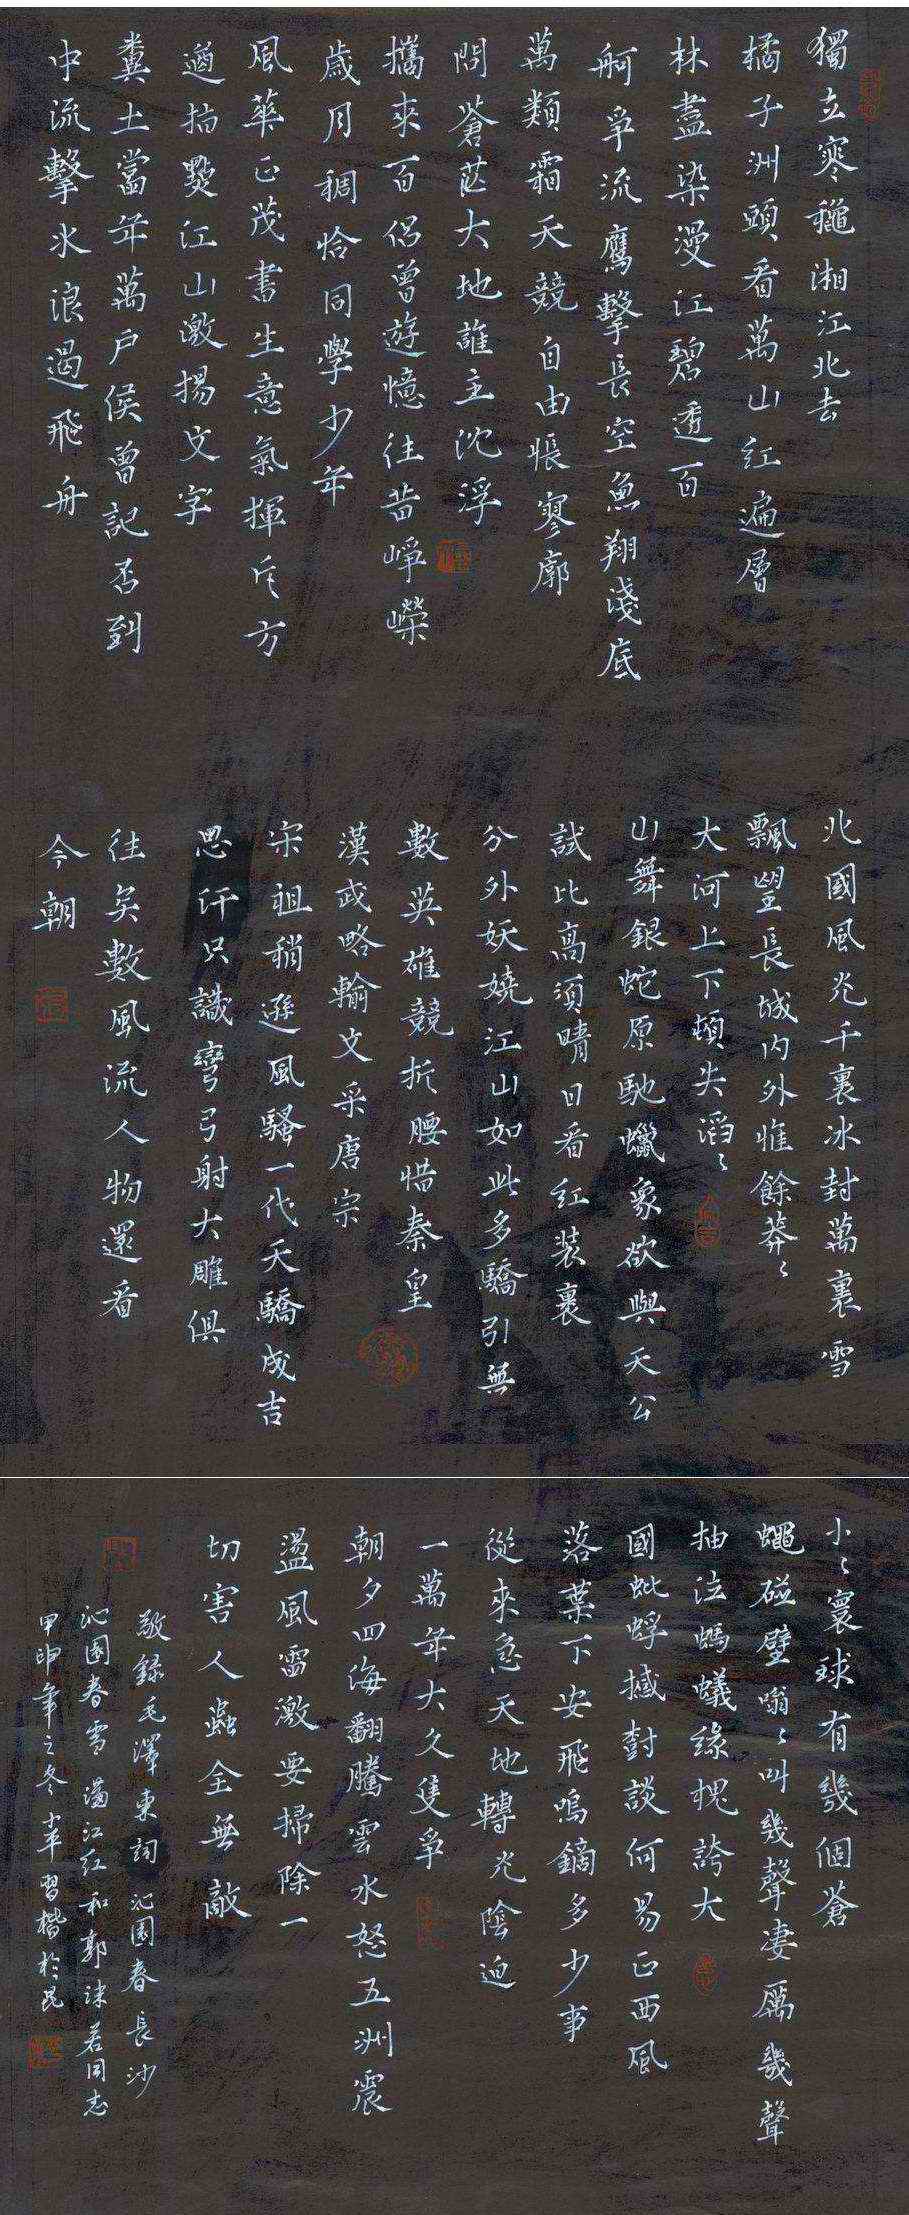 獨立寒穐湘江北去
橘子洲頭看萬山紅遍層
林盡染漫江碧透百
舸爭流鷹擊長空魚翔淺底
萬類霜天競自由悵寥廓
問蒼茫大地誰主沈浮
攜來百侶曾遊憶往昔崢嶸
歲月稠恰同學少年
風華正茂書生意氣揮斥方
遒指點江山激揚文字
糞土當年萬戶侯曾記否到
中流擊水浪遏飛舟
北國風光千裏冰封萬裏雪
飄望長城內外惟餘莽々
大河上下頓失滔々
山舞銀蛇原馳蠟象欲與天公
試比高須晴日看紅裝裹
分外妖嬈江山如此多驕引無
數英雄競折腰惜秦皇
漢武略輸文采唐宗
宋祖稍遜風騷一代天驕成吉
思汗只識彎弓射大雕俱
往矣數風流人物還看
今朝
小々寰球有幾個蒼
蠅碰壁嗡々叫幾聲凄厲幾聲
抽泣螞蟻緣槐誇大
國蚍蜉撼樹談何易正西風
落葉下安飛鳴鏑多少事
從來急天地轉光陰迫
一萬年太久隻爭
朝夕四海翻騰雲水怒五洲震
盪風雷激要掃除一
切害人蟲全無敵
敬錄毛澤東詞沁園春長沙
沁園春雪滿江紅和郭沫若同志
甲申年之冬 習楷於昆